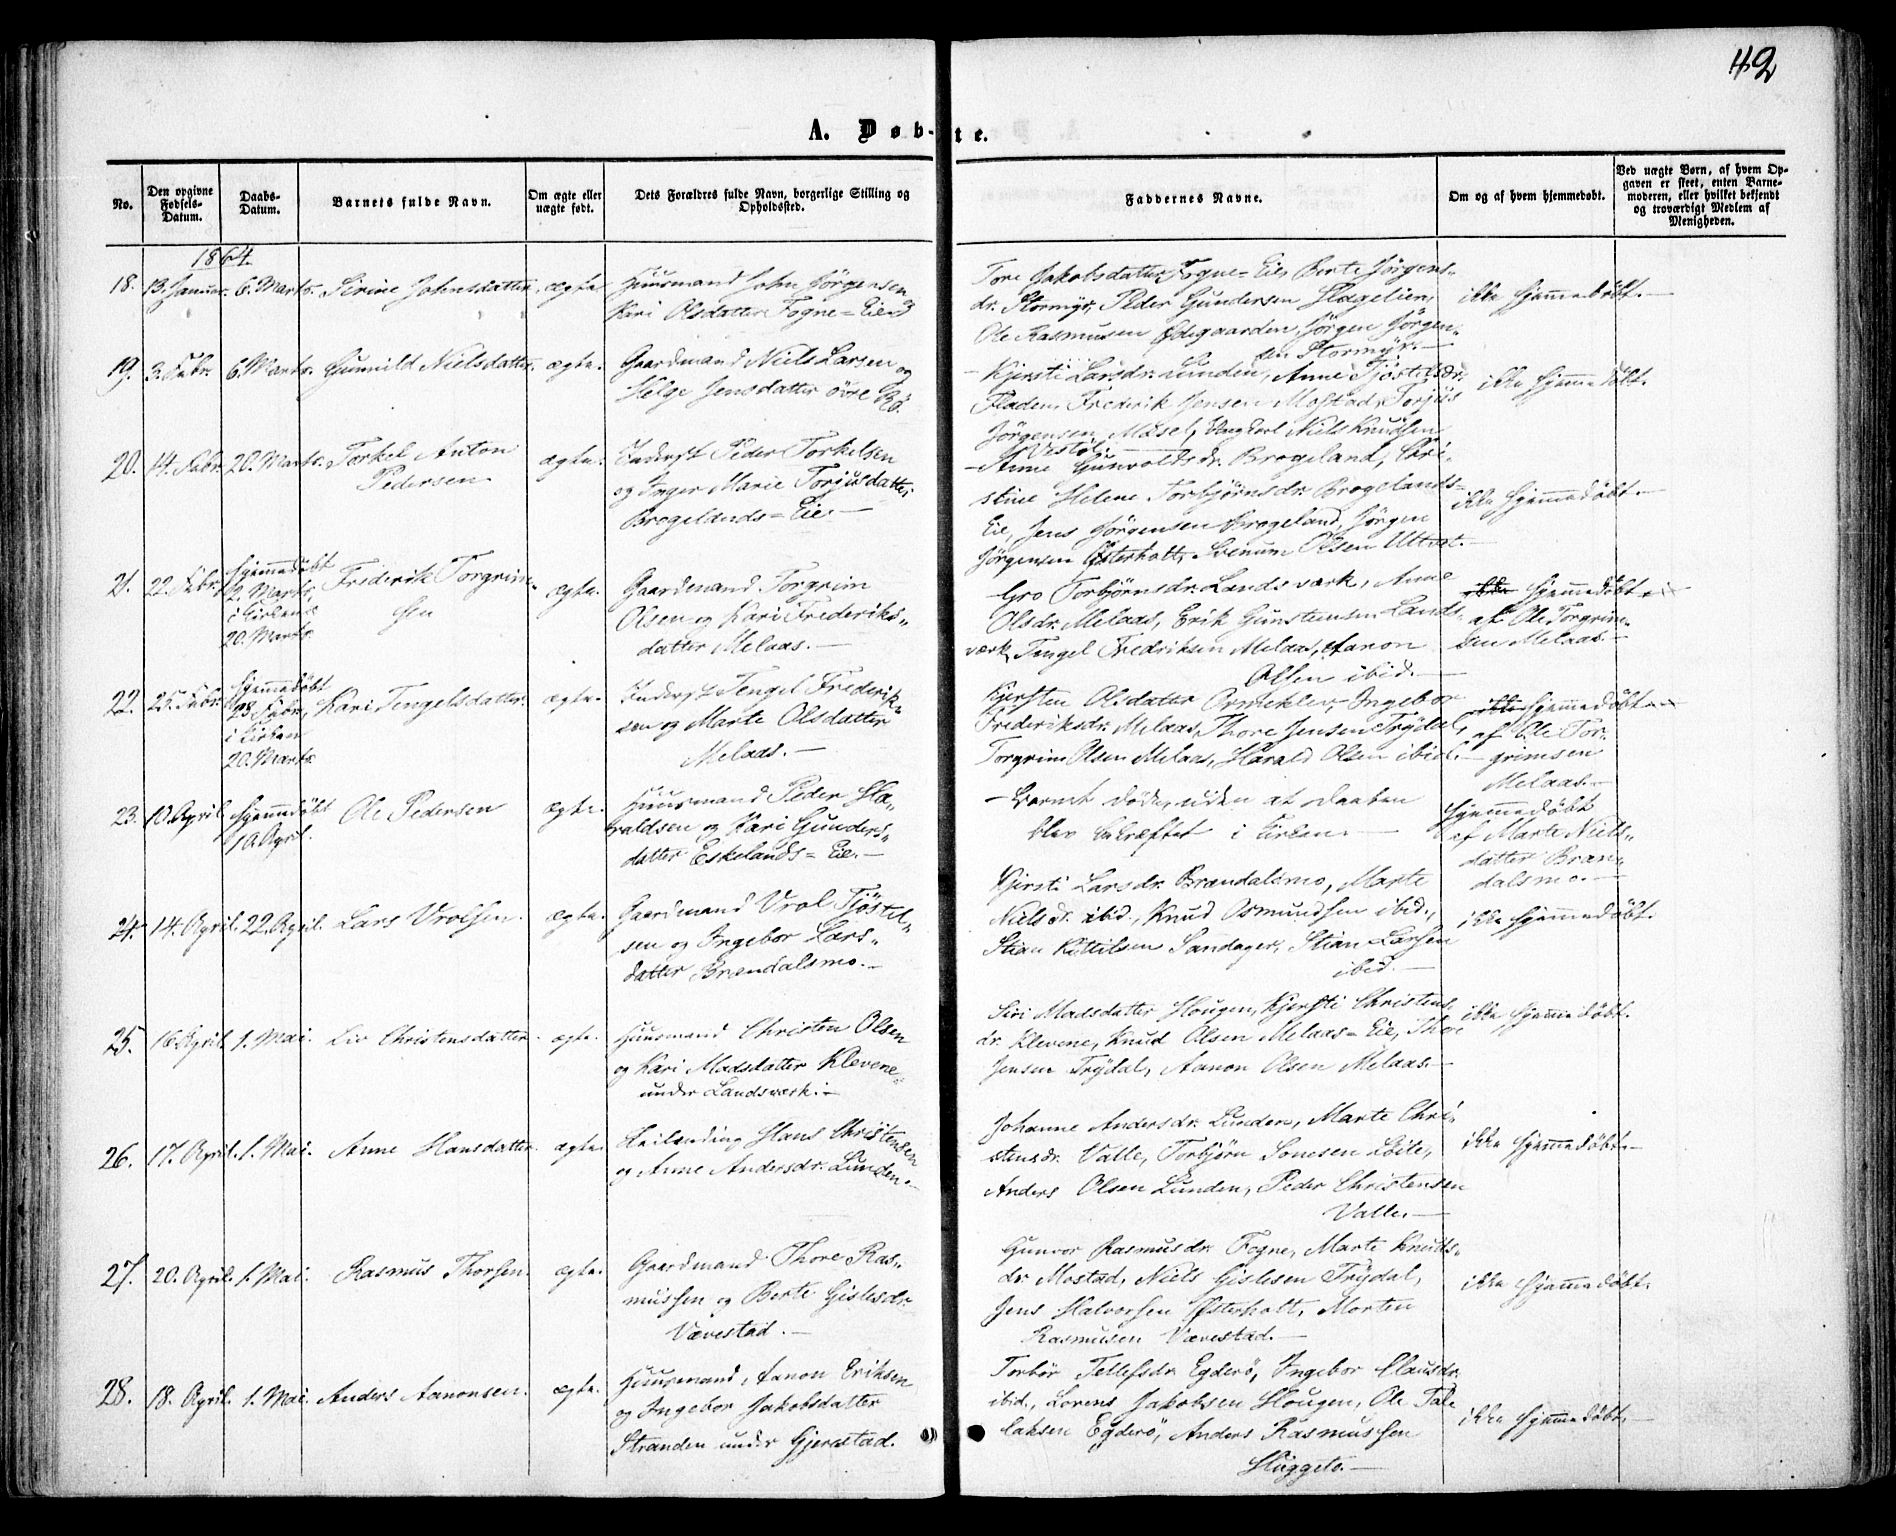 42
A. Døb-te.
No.
Den opgivne Fødsels-Datum.
Daabs-Datum.
Barnets fulde Navn.
Om ægte eller uægte født.
Dets Forældres fulde Navn, borgerlige Stilling og Opholdssted.
Faddernes Navne.
Om og af hvem hjemmedøbt.
Ved uægte Børn, af hvem Opgaven er skeet, enten Barnemoderen, eller hvilket bekjendt og troværdigt Medlem af Menigheden.
1864.
18. 13. Januar. 6. Marts. Sirine Johnsdatter. ægte.
Huusmand John Jörgensen og
Kari Olsdatter Fogne=Eie.
Tore Jakobsdatter Fogne=Eie, Berte Jörgens-
dr. Stormyr, Peder Gundersen Slagelien,
Ole Rasmusen Ødegaarden, Jörgen Jörgen-
sen Stormyr.
ikke hjemmedöbt.
19. 3. Febr. 6. Marts. Gunnild Nielsdatter. ægte.
Gaardmand Niels Larsen og
Helge Jensdatter övre Rö.
Kjersti Larsdr. Lunden, Anne Tjöstelsdr.
Fladen, Frederik Jensen Mostad, Torjus
Jörgensen Mösel, Ungkarl Niels Knudsen
Vestöl.
ikke hjemmedöbt.
20. 14. Febr. 20. Marts. Torkel Anton
Pedersen
ægte.
Inderst Peder Torkelsen
og Inger Marie Torjusdatter
Brogelands=Eie.
Anne Gunvoldsdr. Brogeland, Chri-
stine Helene Torbjörnsdr. Brogelands=
Eie, Jens Jörgensen Brogeland, Jörgen
Jörgensen Østerholt, Olsen
ikke hjemmedöbt.
21. 22. Febr. hjemmedöbt
2. Marts,
i Kirken
20. Marts.
Frederik Torgrim-
sen
ægte.
Gaardmand Torgrim
Olsen og Kari Frederiks-
datter Melaas.
Gro Torbjörnsdr. Landsværk, Anne
Olsdr. Melaas, Erik Gunstensen Lands-
værk, Tengel Fredriksen Melaas, Aanon
Olsen ibid.
ikke hjemmedöbt
af Ole Torgrim-
sen Melaas.
22. 25. Febr. hjemmedöbt
28 Febr,
i Kirken
20. Marts
Kari Tengelsdatter. ægte.
Inderst Tengel Frederik-
sen og Marte Olsdatter
Melaas.
Kjersten Olsdatter Ormekler, Ingebor
Frederiksdr. Melaas, Thore Jensen Trydal,
Torgrim Olsen Melaas, Harald Olsen ibid.
ikke hjemmedöbt
af Ole Tor-
grimsen
Melaas.
23. 10. April. hjemmedöbt
10. April.
Ole Pedersen ægte.
Huusmand Peder Ha-
raldsen og Kari Gunders-
datter Eskelands=Eie.
Barnet döde, uden at Daaben
blev bekræftet i Kirken.
hjemmedöbt
af Marte Niels-
datter Bræn-
dalsmo.
24. 14. April. 22. April. Lars Vrolsen. ægte.
Gaardmand Vrol Tjöstel-
sen og Ingebor Lars-
datter Brændalsmo.
Kjersti Larsdr. Brændalsmo, Marte
Nielsdr. ibid., Knud Osmundsen ibid.,
Stian Kittilsen Sandager, Stian Larsen
ibid.
ikke hjemmedöbt.
25. 16 April. 1. Mai. Liv Christensdatter. ægte.
Huusmand Christen Olsen
og Kari Madsdatter Klevene
under Landsværk.
Siri Madsdatter Hougen, Kjersti Christens-
dr. Klevene, Knud Olsen Melaas=Eie, Thore
Jensen Trydal, Aanon Olsen Melaas.
ikke hjemmedöbt.
26. 17. April. 1. Mai. Anne Hansdatter. ægte.
Leilending Hans Christensen
og Anne Andersdr. Lunden.
Johanne Andersdr. Lunden, Marte Chri-
stensdr. Valle, Torbjörn Lonesen Löite,
Anders Olsen Lunden, Peder Christensen
Valle.
ikke hjemmedöbt.
27. 20. April. 1. Mai. Rasmus Thorsen. ægte.
Gaardmand Thore Ras-
mussen og Berte Gislesdr.
Vævestad.
Gunvor Rasmusdr. Fogne, Marte Knuds-
dr. Mostad, Niels Gislesen Trydal,
Jens Halvorsen Østerholt, Morten
Rasmusen Vævestad.
ikke hjemmedöbt.
28. 18. April. 1. Mai. Anders Aanonsen. ægte.
Huusmand Aanon Eriksen
og Ingebor Jakobsdatter
Stranden under Gjerestad.
Torbör Tellefsdr. Egderö, Ingebor Clausdr.
ibid., Lorens Jakobsen Hougen, Ole Tal-
laksen Egderö, Anders Rasmussen
Huggeto.
ikke hjemmedöbt.